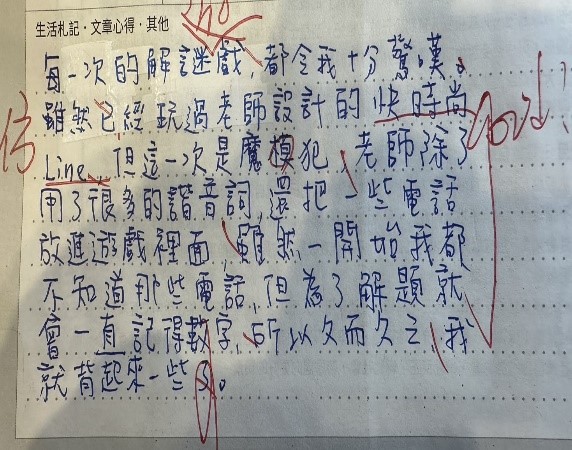 生活札記·文章心得·其他
每一次的解謎戲，都令我十分驚嘆。
雖然已經玩過老師設計的快時尚
Line，但這一次是魔模犯，老師除了
用了很多的諧音詞，還把一些電話
放進遊戲裡面，雖然一開始我都
不知道那些電話，但為了解題就
會一直記得數字，所以久而久之，我
就背起來一些了。
good